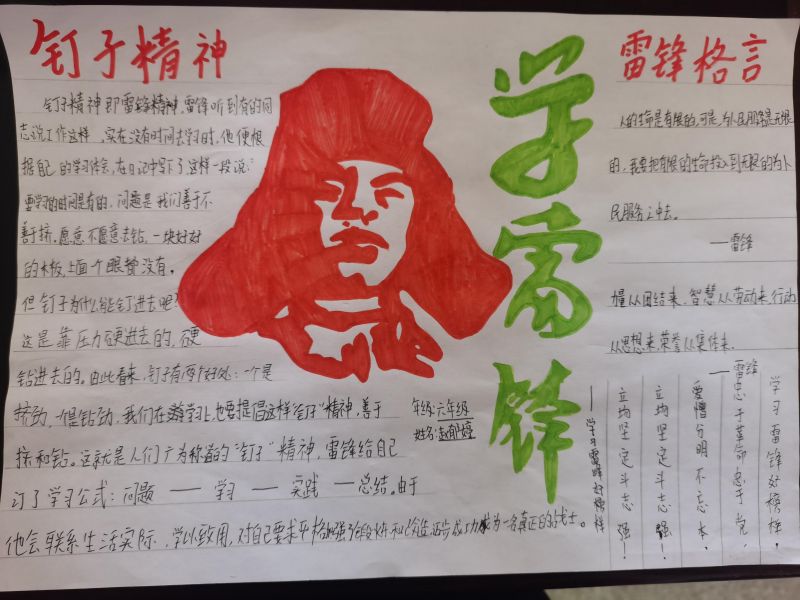 钉子精神
钉子精神即雷锋精神,雷锋听到有的同
志说工作这样,实在没有时间去学习时,他便根
据自己的学习体会,在日记中写下了这样一段说:
要学习的时间是有的,问题是我们善于不
善于挤,愿意不愿意去钻,一块好好
的木板,上面一个眼
没有,
但钉子为什么能钉进去呢?
这是靠压力硬进去的,硬
钻进去的。由此看来,钉子有两个好处:一个是
挤劲,一个是钻劲,我们在学习上,也要提倡这样"钉子"精神,善于
挤和钻。这就是人们广为称道的"钉子"精神,雷锋给自己
订了学习公式:问题 — 学习 — 实践 — 总结。由于
他会联系生活实际,学以致用,对自己要求严格
成为一名真正的战士。
学雷锋
年级:六年级
姓名:
雷锋格言
人的生命是有限的,可是,为人民服务是无限
的,我要把有限的生命投入到无限的为人
民服务之中去。
——雷锋
力量从团结来,智慧从劳动来,行动
从思想来,荣誉从集体来。
——雷锋
学习雷锋好榜样,
忠于革命忠于党,
爱憎分明不忘本,
立场坚定斗志强!
立场坚定斗志强!
——学习雷锋好榜样